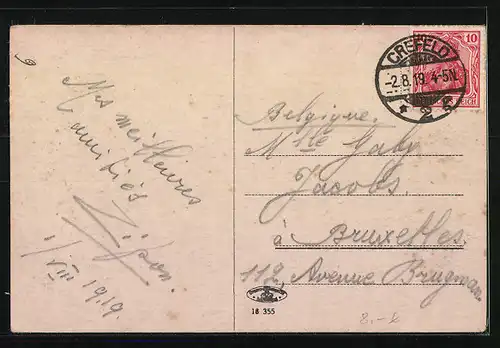 Mes meilleures
amitiés
1/VIII 1919.
CREFELD
-2.8.19. 4-5N.
* 2
10
REICH
Belgique.
Mlle Gaby
Jacobs.
à Bruxelles.
112, Avenue Brugman.
18 355
8.-